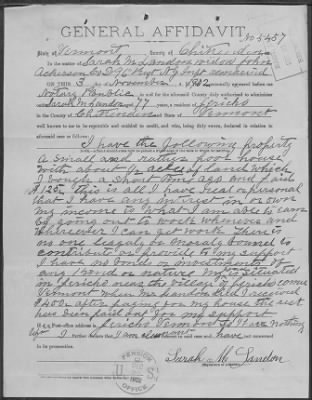 No 5457
GENERAL AFFIDAVIT.
State of Vermont, County of Chittenden
In the matter of Sarah M Landon widow John
Ackerson Co D 96 Regt N.Y. Inft
ON THIS 3 day of November 1902 personally appeared before me
Notary Public in and for the aforesaid County duly authorized to administer
oaths Sarah M Landon aged 77 years, Jericho
in the County of Chittenden Vermont
well known to me to be reputable and entitled to credit, and who, being duly sworn, declared in relation to
aforesaid case as follows:
I have the following property
a small and rather poor house
with about ½ acre of land which
I bought a short time ago and paid
$125 this is all I have real or personal
that I have any interest in or own
my income is what I am able to earn
by going out to work whenever and
wherever I can get work There is
no one legally or morally bound to
contribute or provide to my support
I have no bonds or investments of
any kind or nature is situated
in Jericho near the village of Jericho
Vermont when
$400 after paying for my house the rest
have been paid out for my support
H er Post-office address is Jericho Vermont
further that I am claimant and have not interested
in its prosecution.
Sarah M Landon
PENSION
U S
OFFICE